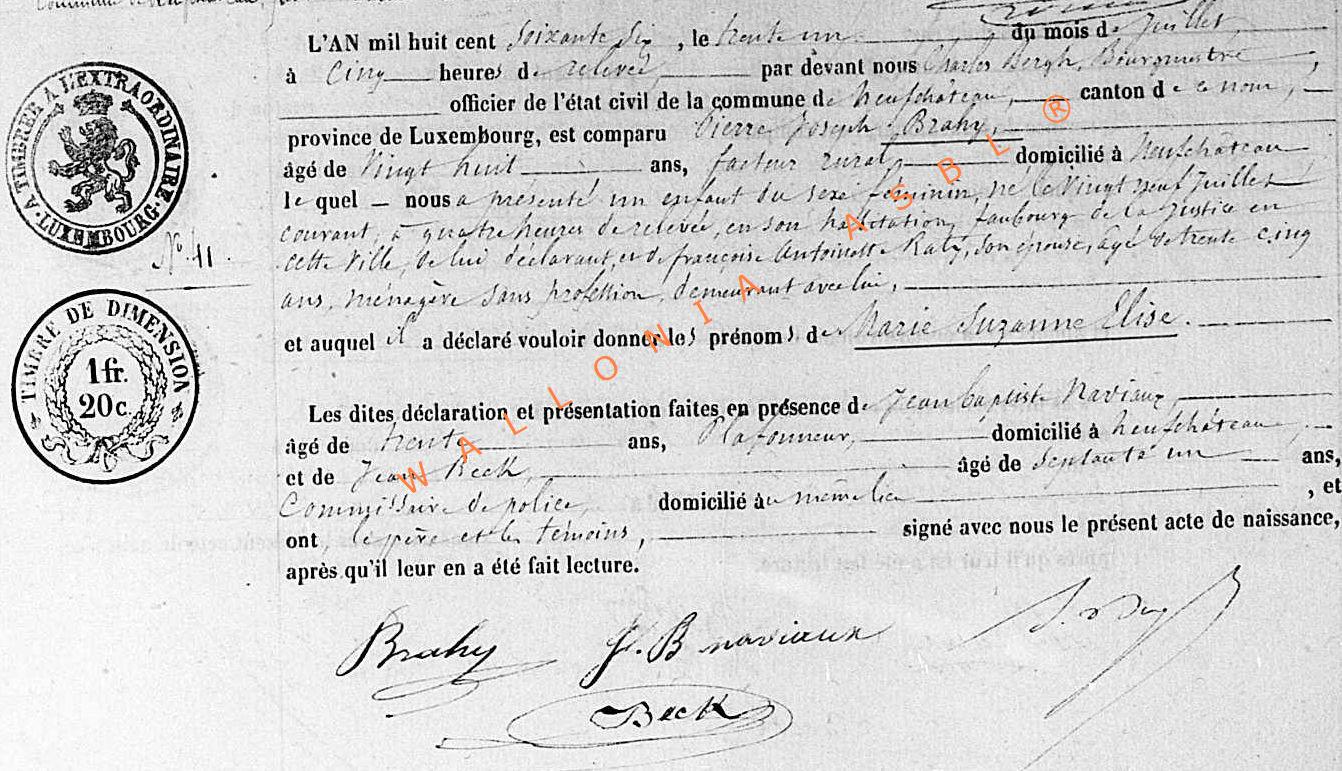 L'AN mil huit cent soixante dix, le trente un du mois de juillet
à cinq heures de relevée, par devant nous Charles Bergh, Bourgmestre,
officier de l'état civil de la commune de Neufchâteau, canton de ce nom,
province de Luxembourg, est comparu Pierre Joseph Brahy,
âgé de vingt huit ans, facteur rural, domicilié à Neufchâteau
le quel nous a présenté un enfant du sexe féminin, né le vingt neuf juillet
courant, à quatre heures de relevée, en son habitation, faubourg de la justice en
cette ville, de lui déclarant, et de françoise Antoinette, son épouse, agé de trente cinq
ans, ménagère sans profession, demeurant avec lui,
et auquel il a déclaré vouloir donner les prénoms de Marie Suzanne Elise.
Les dites déclaration et présentation faites en présence de Jean baptiste Naviaux,
âgé de trente ans, Plafonneur, domicilié à Neufchâteau,
et de Jean Beck, âgé de septante un ans,
Commissaire de police, domicilié au même lieu, et
ont, le père et les témoins, signé avec nous le présent acte de naissance,
après qu'il leur en a été fait lecture.
Brahy J. B naviaux
Beck
A TIMBRER A L'EXTRAORDINAIRE
LUXEMBOURG
No. 41.
TIMBRE DE DIMENSION
1 fr.
20 c.
WALLONIA ASBL ®